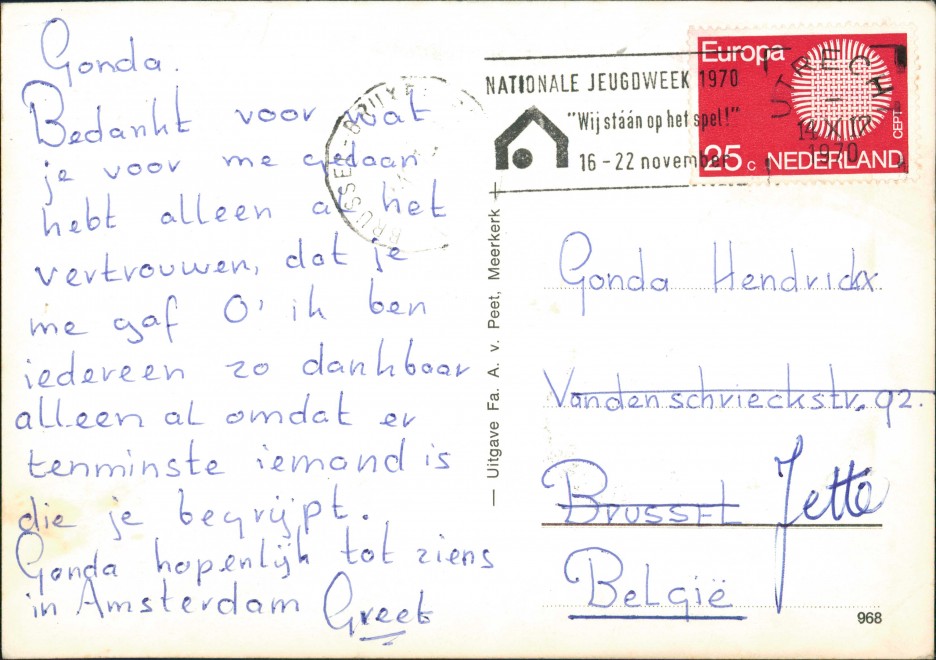 Gonda.
Bedankt voor wat
je voor me gedaan
hebt alleen al het
vertrouwen, dat je
me gaf O' ik ben
iedereen zo dankbaar
alleen al omdat er
tenminste iemand is
die je begrijpt.
Gonda hopenlijk tot ziens
in Amsterdam Greet
— Uitgave Fa. A. v. Peet, Meerkerk —
NATIONALE JEUGDWEEK 1970
"Wij stáán op het spel!"
16-22 november
Europa
CEPT
25 c NEDERLAND
UTRECH
14 XI
1970
Gonda Hendrickx
Vandenschrieckstr. 92.
Brussel Jette
België
968